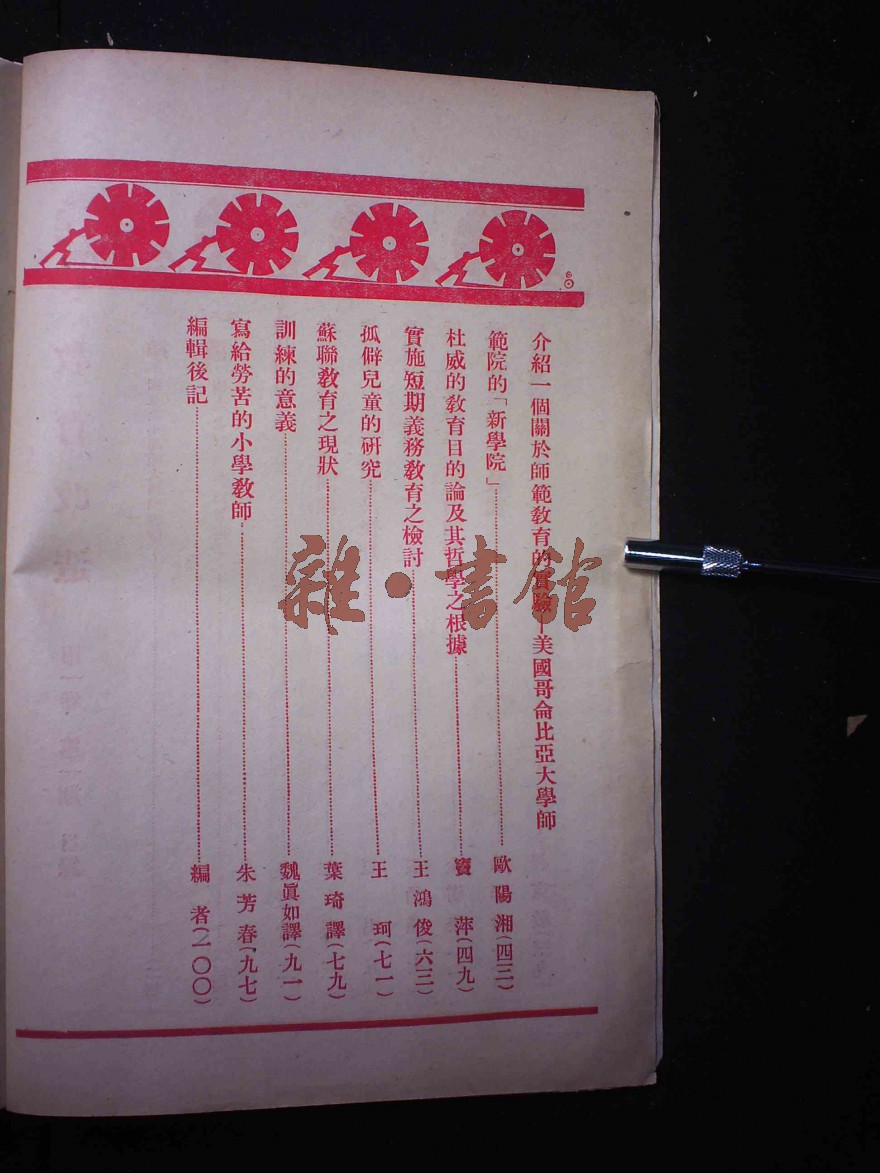 介紹一個關於師範教育的實驗—美國哥侖比亞大學師
範院的「新學院」……歐陽湘(四三)
杜威的教育目的論及其哲學之根據……竇萍(四九)
實施短期義務教育之檢討……王鴻俊(六三)
孤僻兒童的研究……王珂(七一)
蘇聯教育之現狀……葉琦譯(七九)
訓練的意義……魏眞如譯(九一)
寫給勞苦的小學教師……朱芳春(九七)
編輯後記……編者(一〇〇)
雜·書館